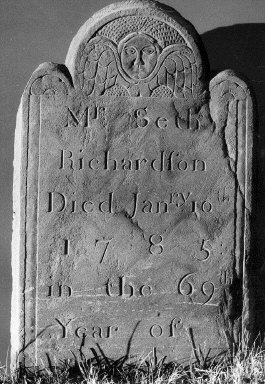 Mr Seth
Richardſon
Died Janry 10th
1785
in the 69th
Year of